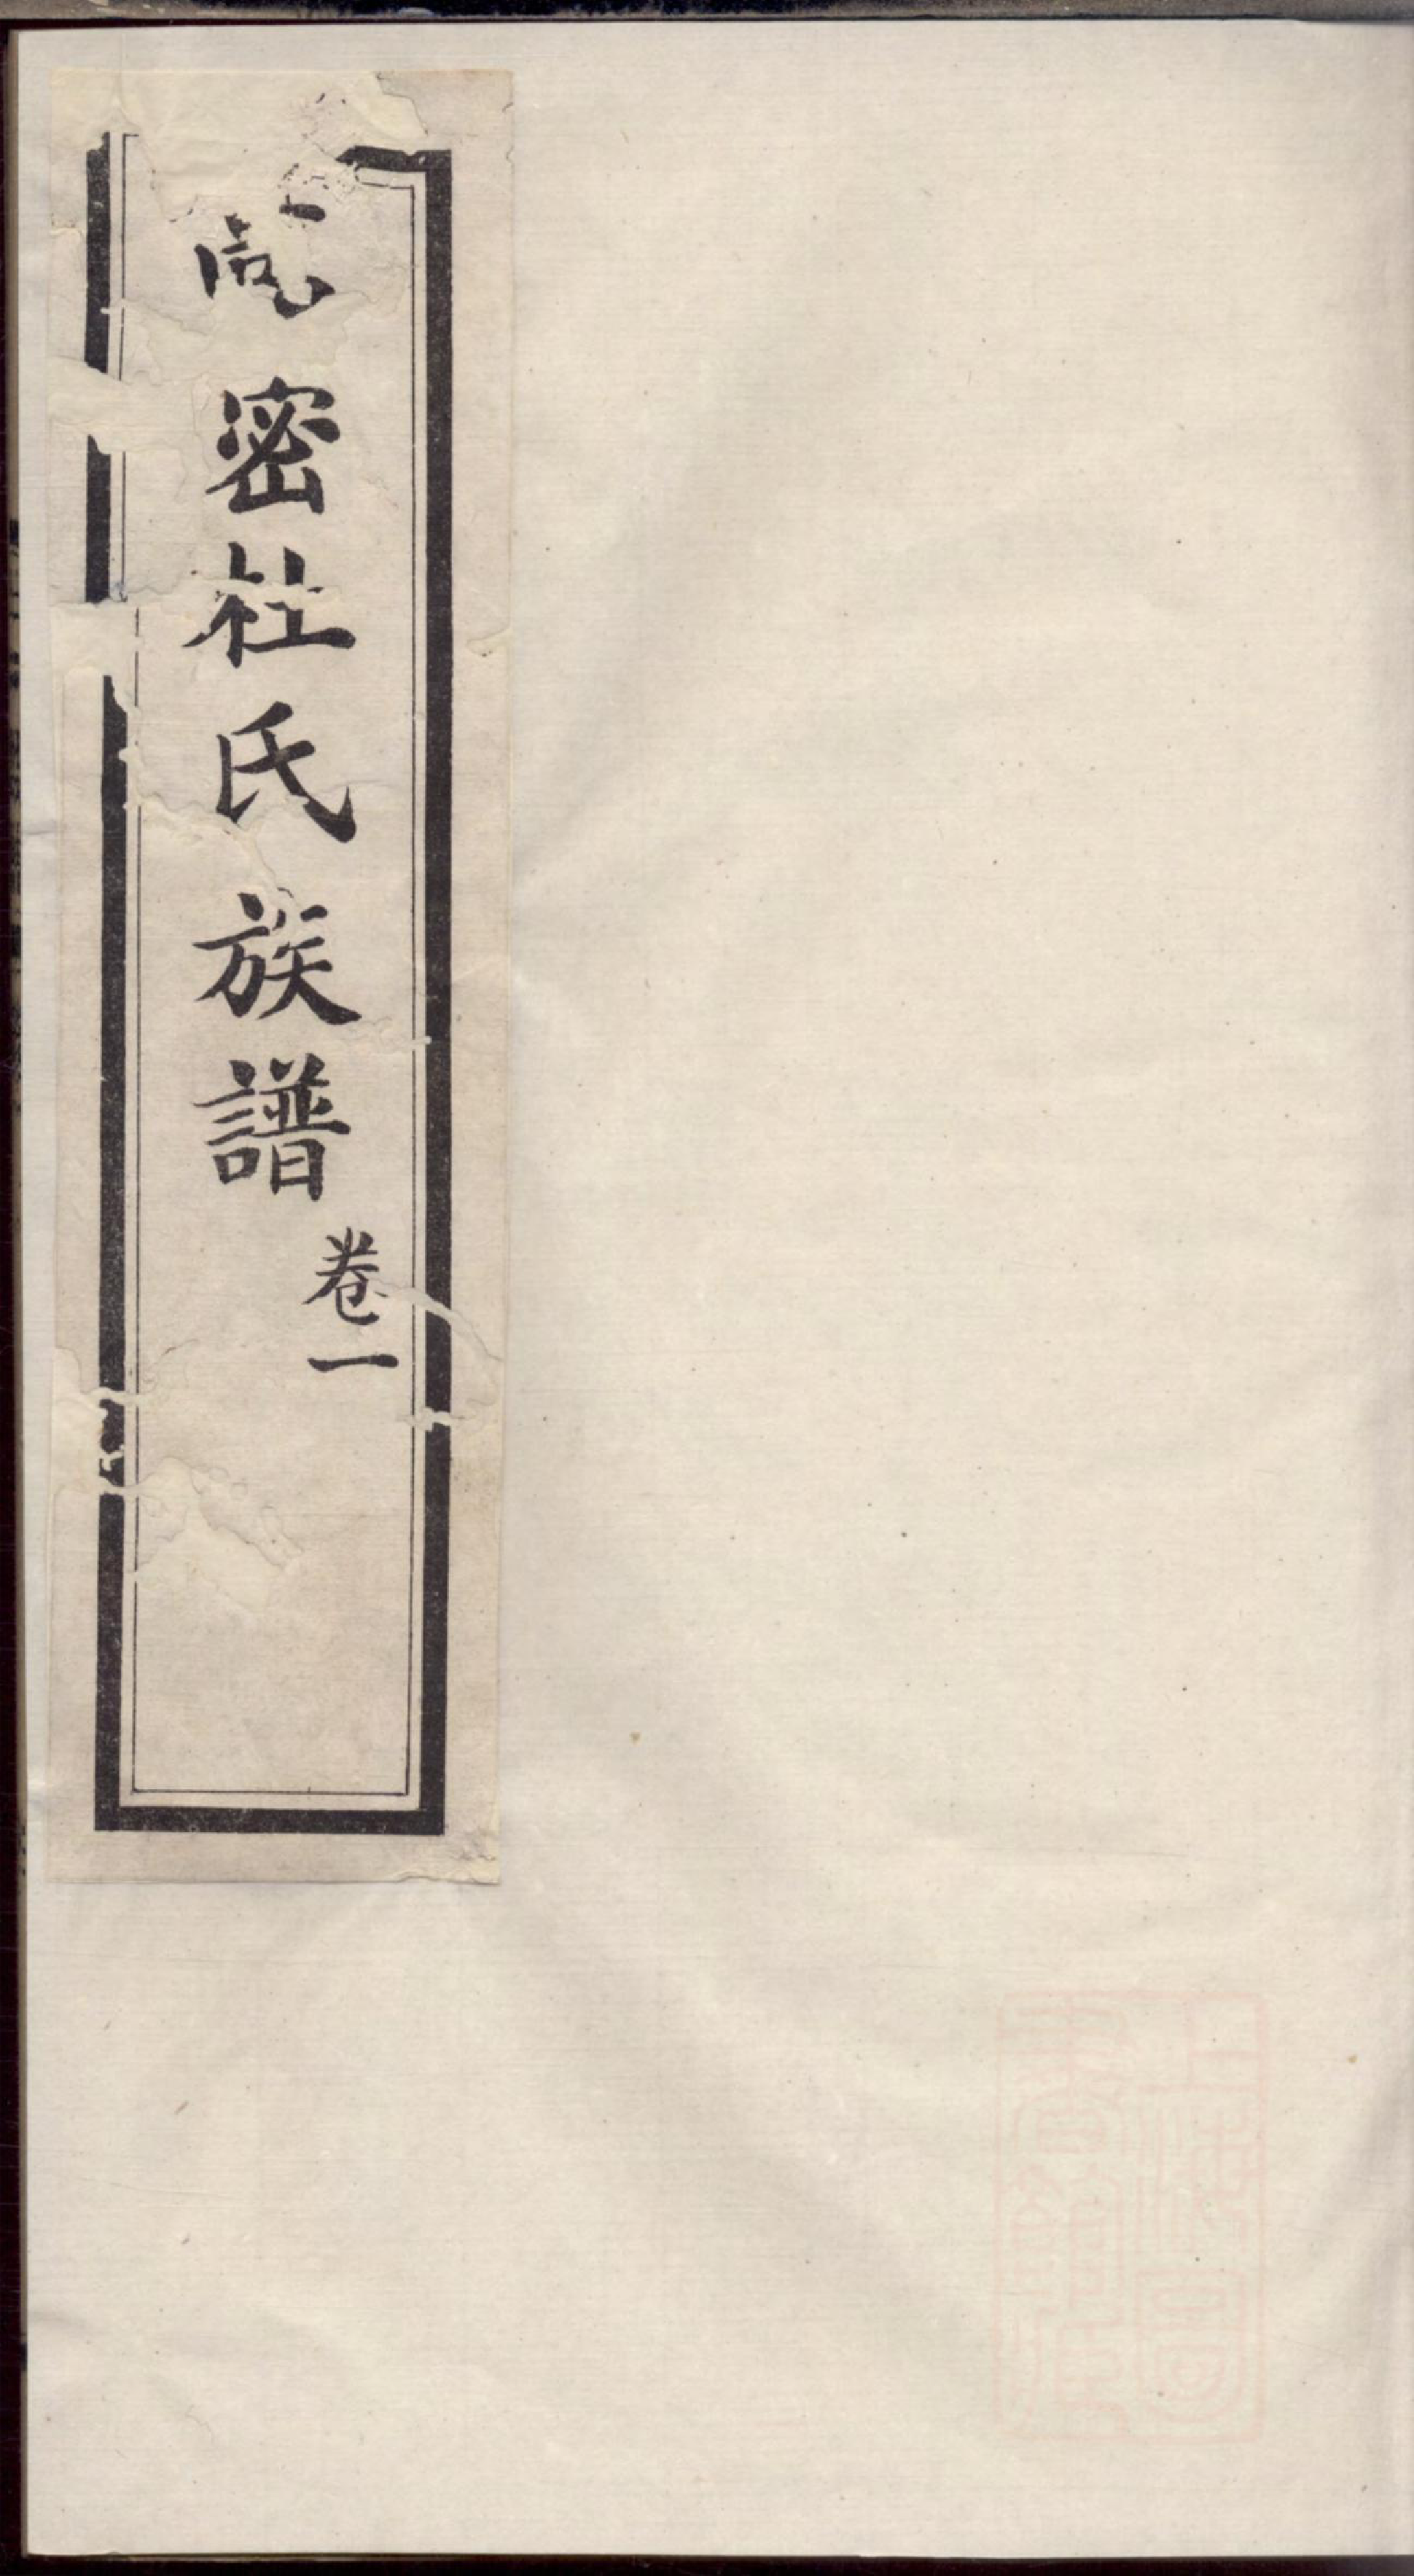 高密杜氏族譜
卷一
上海圖
書館藏